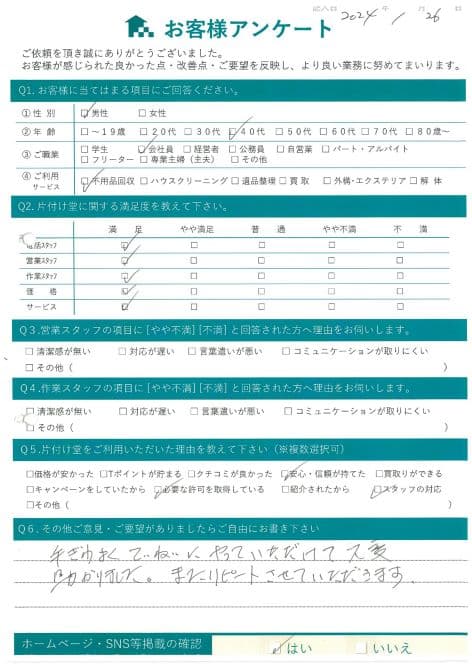 記入日 2024 年 1 月 26 日
お客様アンケート
ご依頼を頂き誠にありがとうございました。
お客様が感じられた良かった点・改善点・ご要望を反映し、より良い業務に努めてまいります。
Q1.お客様に当てはまる項目にご回答ください。
①性別 ☑男性 □女性
②年齢 □～19歳 □20代 □30代 ☑40代 □50代 □60代 □70代 □80歳～
③ご職業 □学生 ☑会社員 □経営者 □公務員 □自営業 □パート・アルバイト
□フリーター □専業主婦（主夫） □その他
④ご利用サービス ☑不用品回収 □ハウスクリーニング □遺品整理 □買取 □外構・エクステリア □解体
Q2.片付け堂に関する満足度を教えて下さい。
満足 やや満足 普通 やや不満 不満
電話スタッフ ☑ □ □ □ □
営業スタッフ ☑ □ □ □ □
作業スタッフ ☑ □ □ □ □
価格 ☑ □ □ □ □
サービス ☑ □ □ □ □
Q3.営業スタッフの項目に[やや不満][不満]と回答された方へ理由をお伺いします。
□清潔感が無い □対応が遅い □言葉遣いが悪い □コミュニケーションが取りにくい
□その他（ ）
Q4.作業スタッフの項目に[やや不満][不満]と回答された方へ理由をお伺いします。
□清潔感が無い □対応が遅い □言葉遣いが悪い □コミュニケーションが取りにくい
□その他（ ）
Q5.片付け堂をご利用いただいた理由を教えて下さい（※複数選択可）
□価格が安かった □Tポイントが貯まる □クチコミが良かった ☑安心・信頼が持てた □買取りができる
□キャンペーンをしていたから ☑必要な許可を取得している □紹介されたから ☑スタッフの対応
□その他（ ）
Q6.その他ご意見・ご要望がありましたらご自由にお書き下さい
手ぎわよく ていねいに やっていただけて 大変
助かりました。またリピートさせていただきます。
ホームページ・SNS等掲載の確認 ☑はい □いいえ